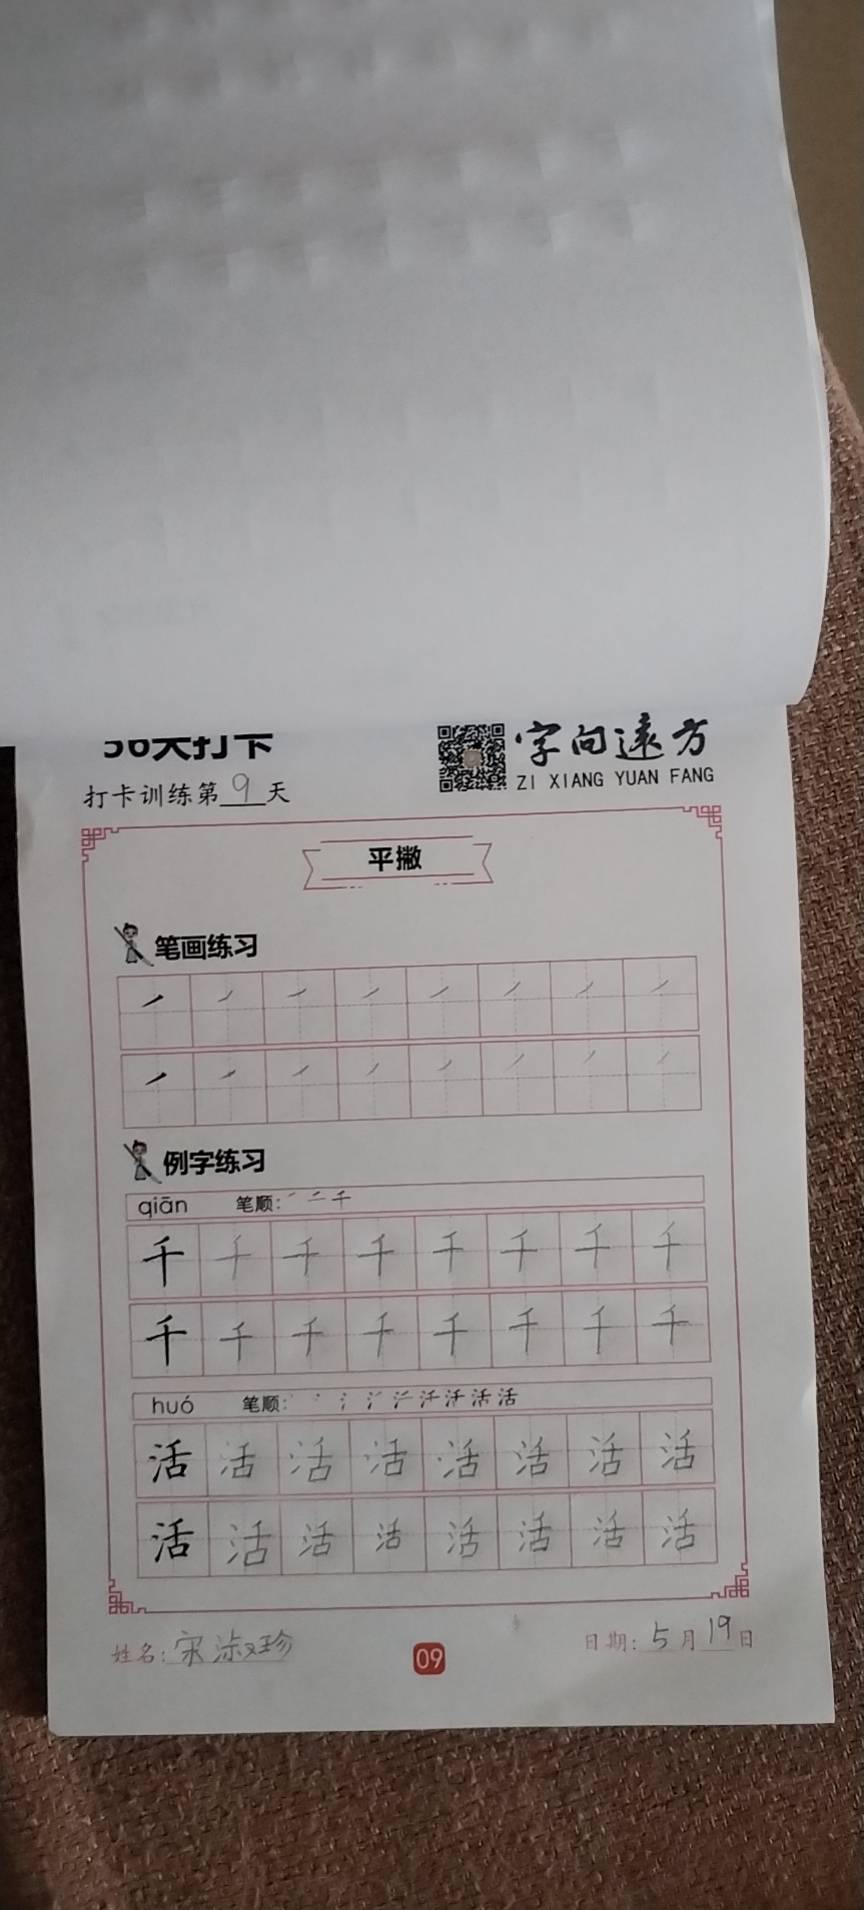 56天打卡
字向远方
ZI XIANG YUAN FANG
打卡训练第9天
平撇
笔画练习
例字练习
qiān 笔顺:
千 千 千 千 千 千 千 千
千 千 千 千 千 千 千 千
huó 笔顺:
活 活 活 活 活 活 活 活
活 活 活 活 活 活 活 活
姓名:宋淑珍
09
日期:5月19日